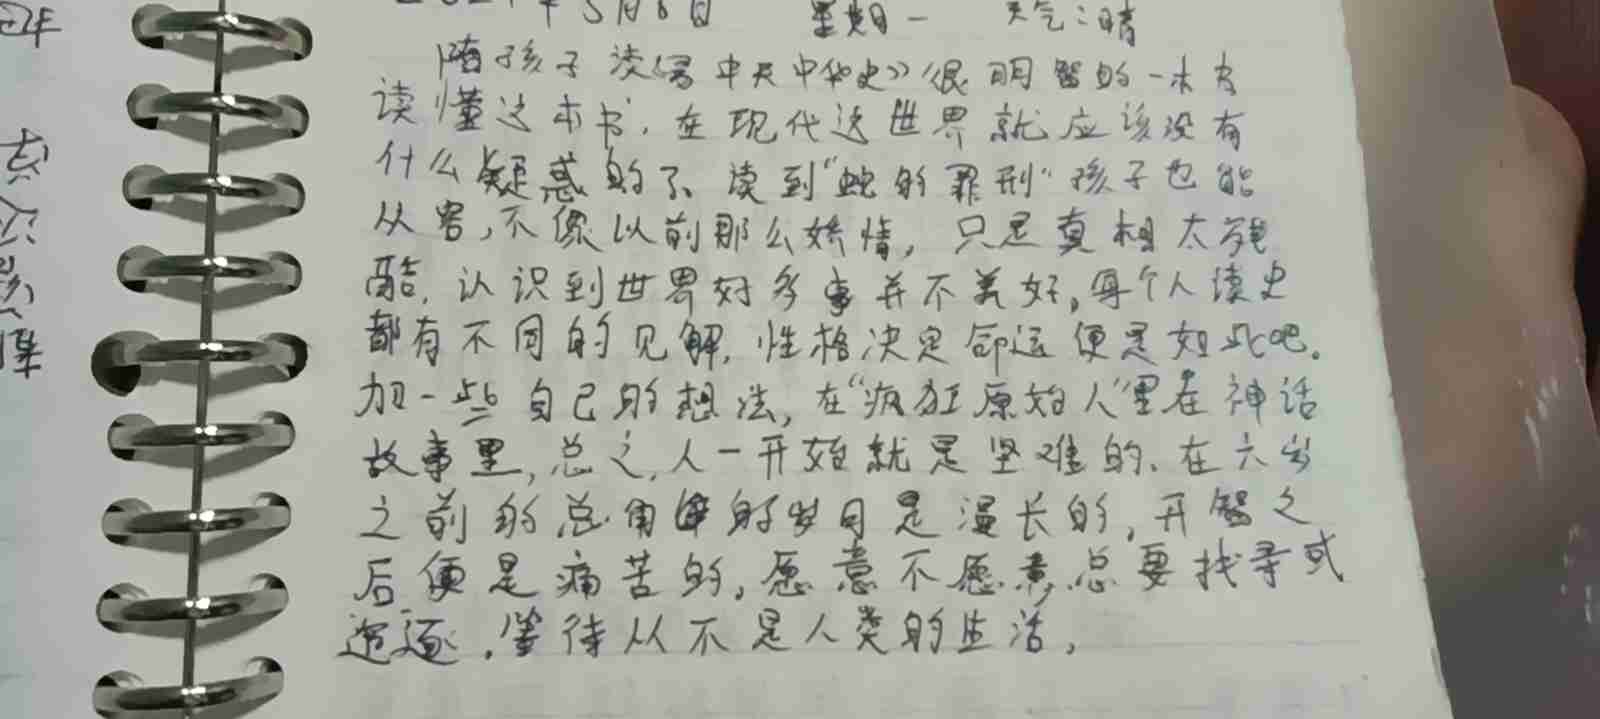 星期一 天气:晴
陪孩子读《易中天中华史》很明智的一本书
读懂这本书,在现代这世界就应该没有
什么疑惑的了、读到“蛇的罪刑”孩子也能
从容,不像以前那么矫情,只是真相太残
酷,认识到世界好多事并不美好,每个人读史
都有不同的见解,性格决定命运便是如此吧。
加一些自己的想法,在“疯狂原始人”里在神话
故事里,总之,人一开始就是坚难的、在六岁
之前的总角的岁月是漫长的,开智之
后便是痛苦的,愿意不愿意,总要找寻或
追逐,等待从不是人类的生活,